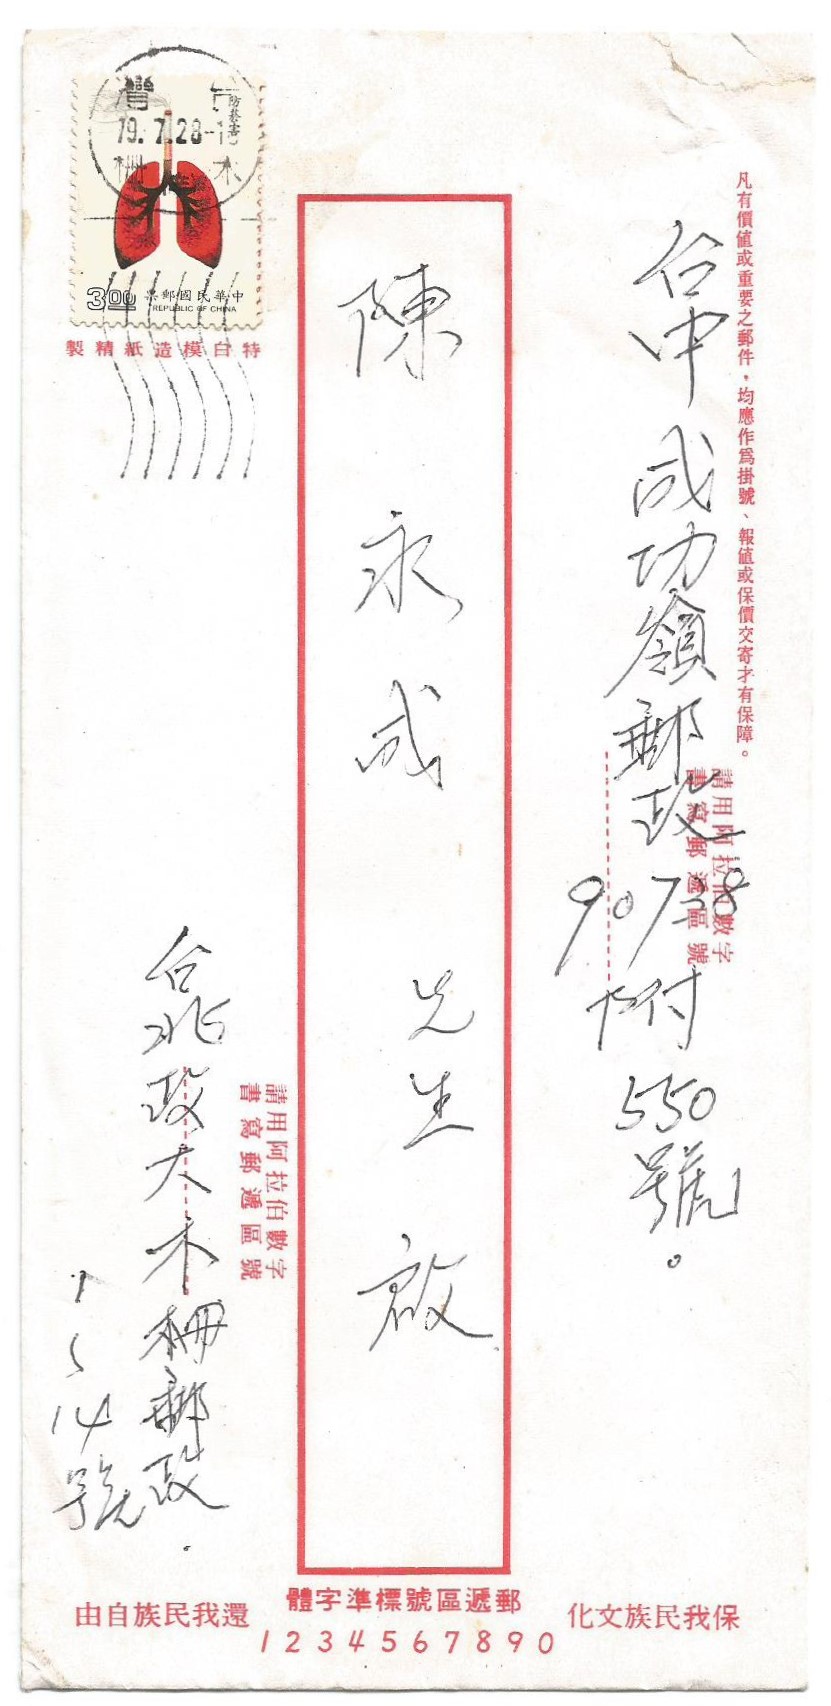 凡有價值或重要之郵件，均應作為掛號、報值或保價交寄才有保障。
請用阿拉伯數字
書寫郵遞區號
台中成功嶺郵政
90738
附
550
號。
陳永成 先生 啟
台灣
79.7.28
木柵
防菸害
3.00
中華民國郵票
REPUBLIC OF CHINA
特白模造紙精製
請用阿拉伯數字
書寫郵遞區號
台北政大木柵郵政
14
號
郵遞區號標準字體
1234567890
保我民族文化
還我民族自由